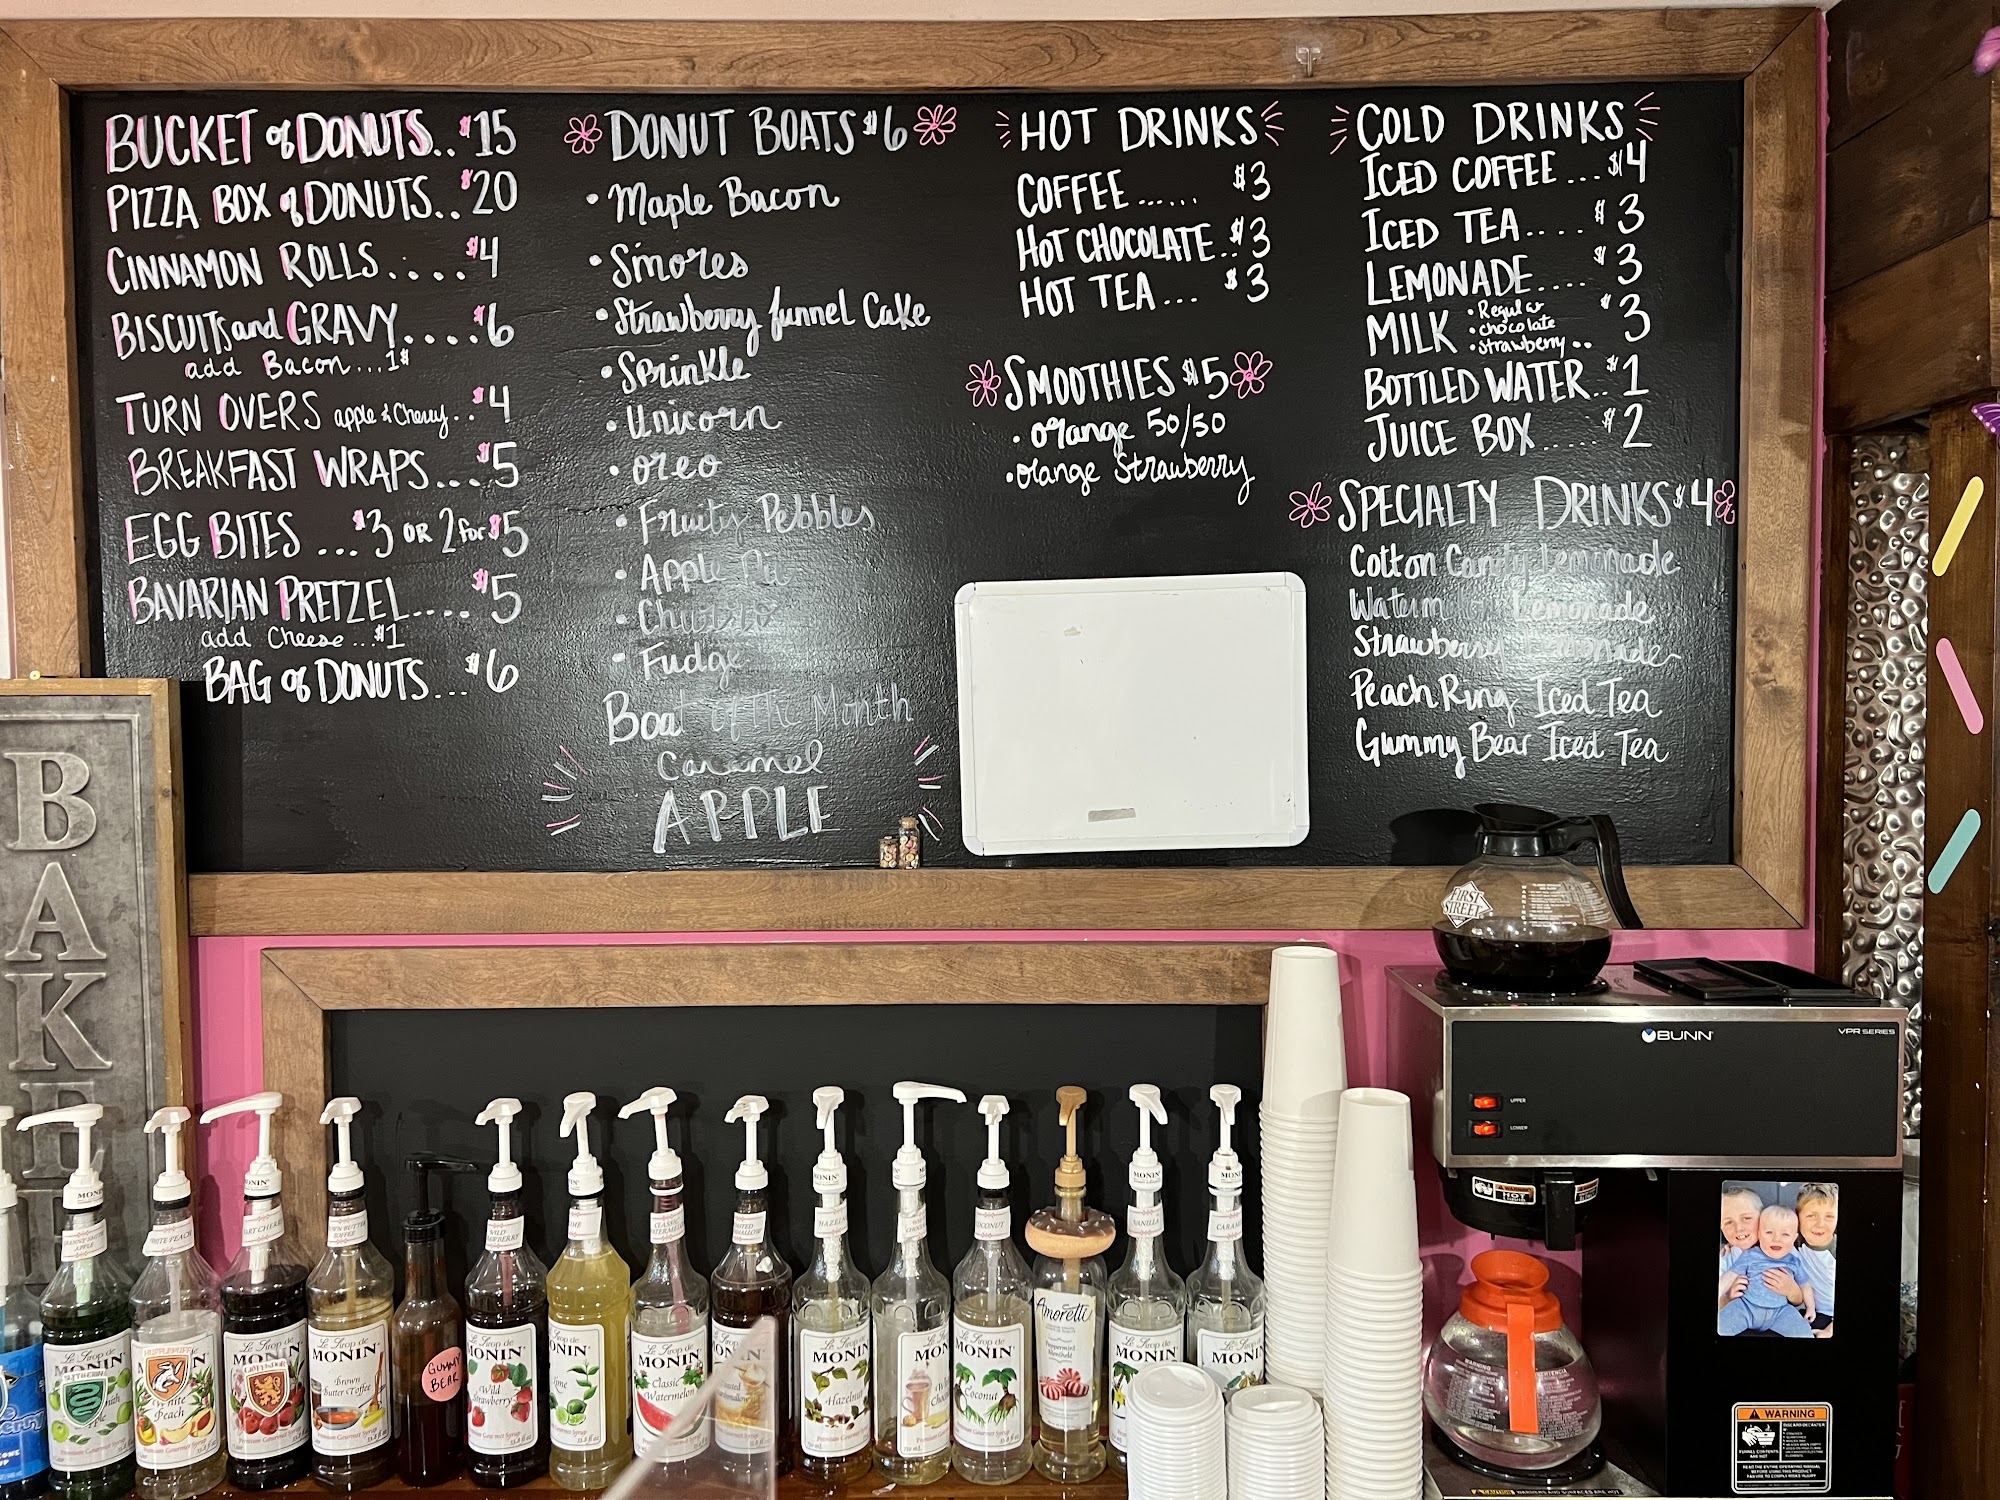 BUCKET of DONUTS..$15
PIZZA BOX of DONUTS..$20
CINNAMON ROLLS....$4
BISCUITS and GRAVY....$6
add Bacon...1$
TURN OVERS apple & Cherry..$4
BREAKFAST WRAPS...$5
EGG BITES ...$3 OR 2 for $5
BAVARIAN PRETZEL....$5
add Cheese...$1
BAG of DONUTS...$6
DONUT BOATS $6
• Maple Bacon
• S'mores
• Strawberry funnel Cake
• Sprinkle
• Unicorn
• oreo
• Fruity Pebbles
• Apple Pie
• Fudge
Boat of The Month
Caramel
APPLE
HOT DRINKS
COFFEE...... $3
HOT CHOCOLATE..$3
HOT TEA... $3
SMOOTHIES $5
• orange 50/50
• orange Strawberry
COLD DRINKS
ICED COFFEE...$4
ICED TEA.... $3
LEMONADE.... $3
MILK • Regular • chocolate • strawberry .. $3
BOTTLED WATER..$1
JUICE BOX..... $2
SPECIALTY DRINKS $4
Cotton Candy Lemonade
Lemonade
Strawberry Lemonade
Peach Ring Iced Tea
Gummy Bear Iced Tea
BAKE
FIRST STREET
BUNN
VPR SERIES
UPPER
LOWER
WARNING
HOT
MONIN
SLYTHERIN
Le Sirop de
MONIN
HUFFLEPUFF
White Peach
Gryffindor
MONIN
Brown Butter Toffee
GUMMY BEAR
MONIN
Wild Strawberry
MONIN
Lime
MONIN
Classic Watermelon
MONIN
Hazelnut
MONIN
Coconut
Amoretti
Peppermint
VANILLA
MONIN
MONIN
WARNING